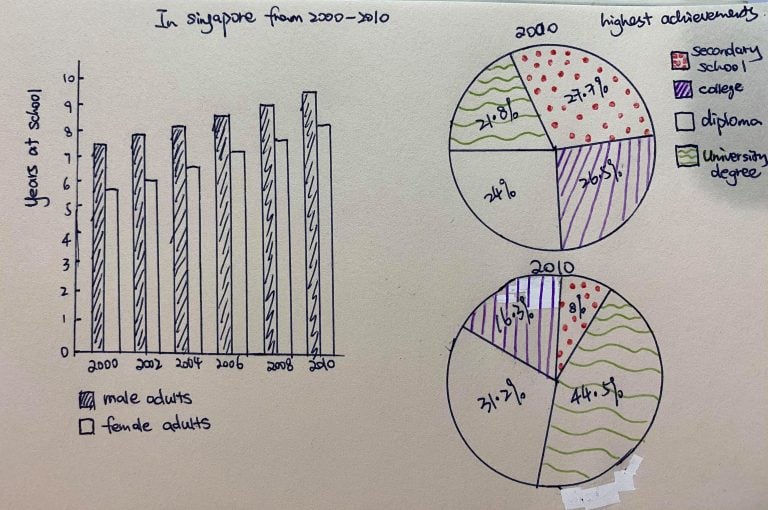 In singapore from 2000-2010
Years at school
10
9
8
7
6
5
4
3
2
1
0
2000 2002 2004 2006 2008 2010
male adults
female adults
highest achievements
secondary
school
college
diploma
University
degree
2000
21.8%
27.7%
24%
26.5%
2010
16.3%
8%
31.2%
44.5%